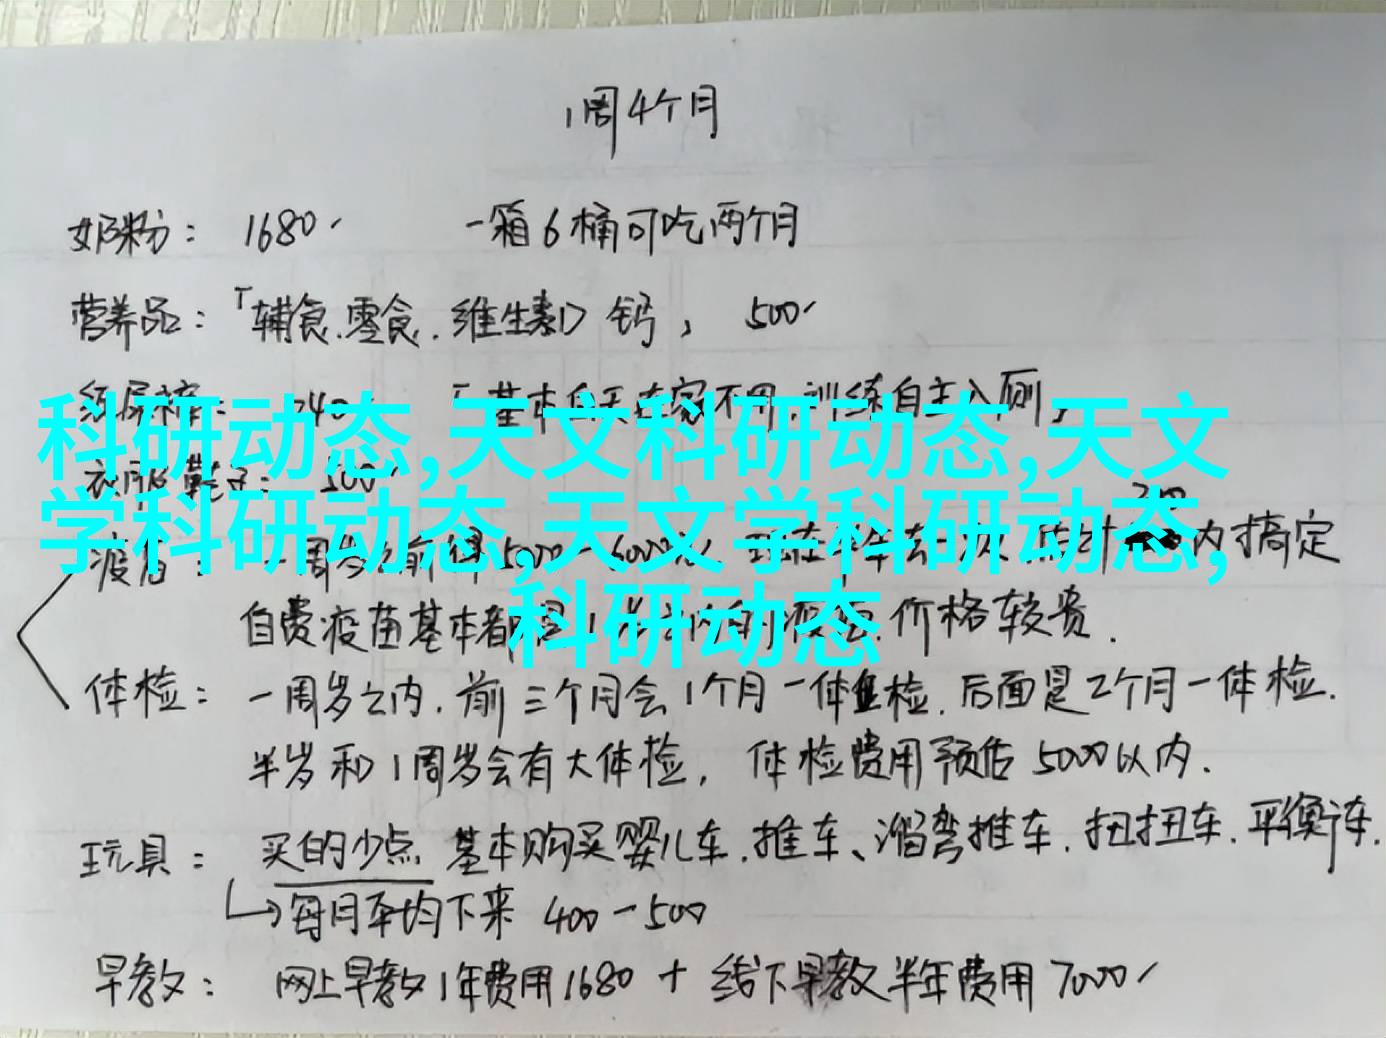 1周4个月
奶粉： 1680 一箱6桶可吃两个月
营养品：「辅食.零食.维生素D 钙， 500
纸尿裤： 240 「基本白天在家不用,训练自主入厕,
科研动态,天文科研动态,天文
衣服鞋子： 500
学科研动态,天文学科研动态,
疫苗： 一周岁之前得5000-6000 内搞定
科研动态
自费疫苗基本都是1岁以内的疫苗.价格较贵.
体检： 一周岁之内.前三个月会1个月一体检.后面是2个月一体检.
半岁和1周岁会有大体检， 体检费用预估5000以内.
玩具： 买的少点 基本购买婴儿车.推车、溜弯推车.扭扭车.平衡车.
→每月平均下来 400-500
早教： 网上早教1年费用1680 + 线下早教半年费用7000